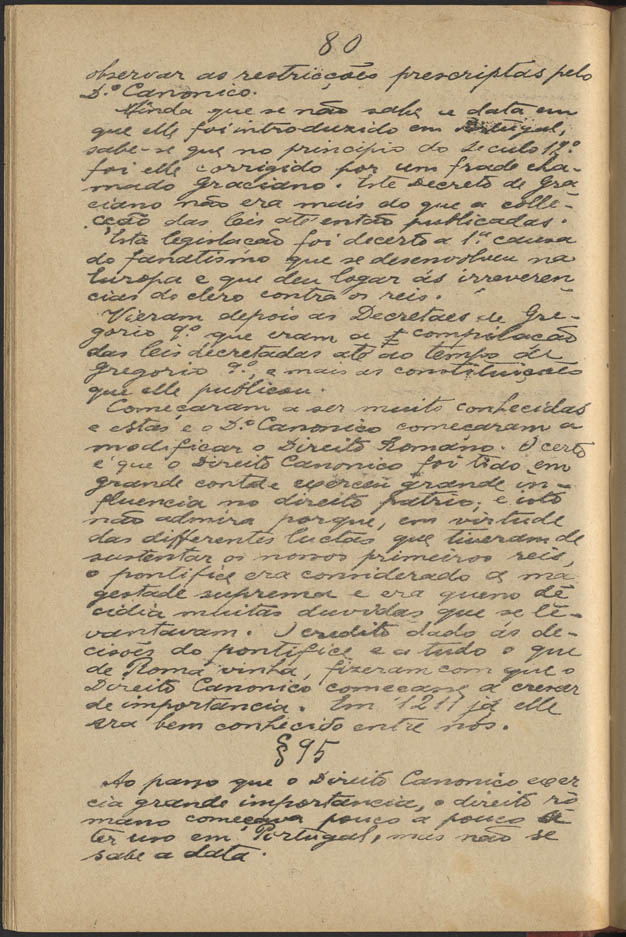 80
observar as restricções prescriptas pelo
D.º Canonico.
Ainda que se não sabe a data em
que elle foi introduzido em Portugal,
sabe-se que no principio do seculo 12.º
foi elle corrigido por um frade cha-
mado Graciano. Este Decreto de Gra-
ciano não era mais do que a colle-
cção das leis até então publicadas.
Esta legislação foi decerto a 1ª causa
do fanatismo que se desenvolveu na
Europa e que deu logar ás irreveren-
cias do clero contra os reis.
Vieram depois as Decretaes de Gre-
gorio 9.º que eram a compilação
das leis decretadas até ao tempo de
Gregorio 9.º, e mais as constituições
que elle publicou.
Começaram a ser muito conhecidas
e estas e o D.º Canonico começaram a
modificar o Direito Romano. O certo
é que o Direito Canonico foi tido em
grande conta e exerceu grande in-
fluencia no direito patrio; e isto
não admira porque, em virtude
das differentes luctas que tiveram de
sustentar os nossos primeiros reis,
o pontifice era considerado a ma
gestade suprema e era quem de
cidia muitas duvidas que se le-
vantavam. O credito dado ás de-
cisões do pontifice e a tudo o que
de Roma vinha, fizeram com que o
Direito Canonico começasse a crescer
de importancia. Em 1211 já elle
era bem conhecido entre nós.
§ 95
Ao passo que o Direito Canonico exer
cia grande importancia, o direito ro
mano começava pouco a pouco a
ter uso em Portugal, mas não se
sabe a data.